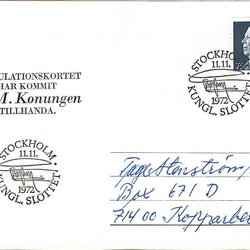 ULATIONSKORTET
HAR KOMMIT
M. Konungen
TILLHANDA.
STOCKHOLM
11.11.
1972
KUNGL. SLOTTET
STOCKHOLM.
11.11.
1972
KUNGL. SLOTTET
Box 671 D
71400 Kopparbe